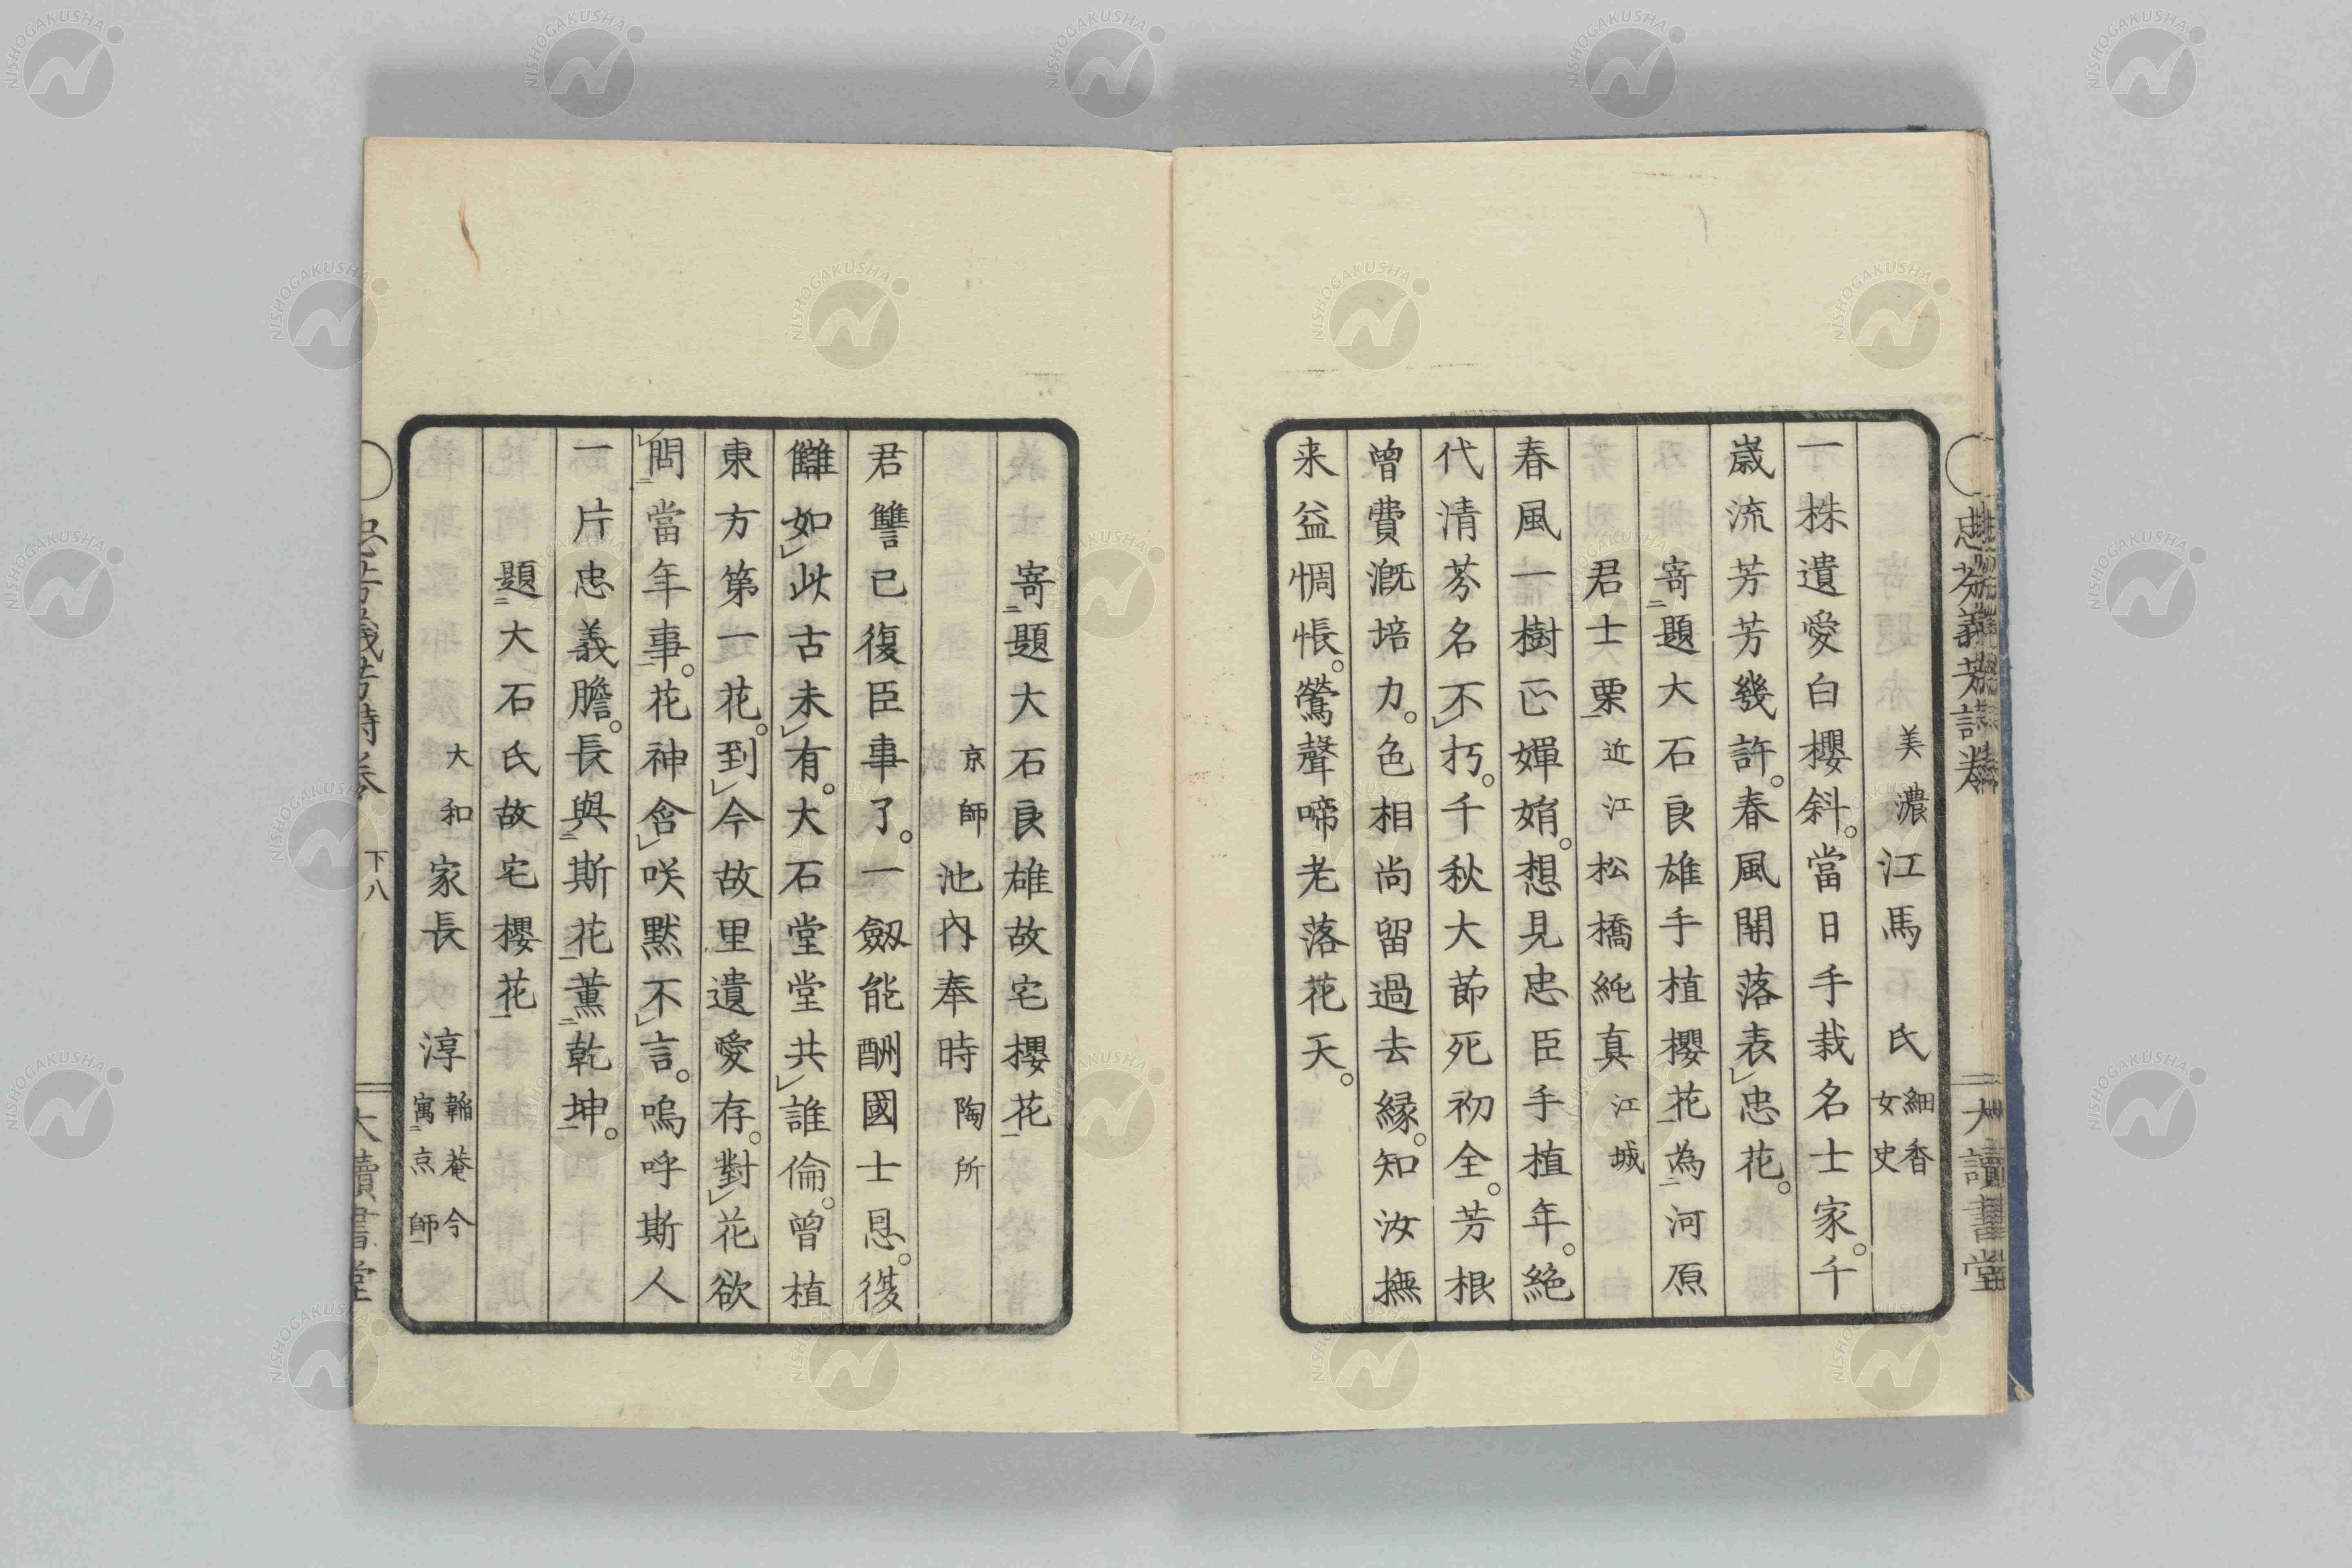 美濃江馬氏細香女史
一株遺愛白櫻斜。當日手栽名士家。千
歳流芳芳幾許。春風開落表忠花。
寄題大石良雄手植櫻花為河原
君士栗近江松橋純真江城
春風一樹正嬋娟。想見忠臣手植年。絶
代清芬名不朽。千秋大節死初全。芳根
曾費漑培力。色相尚留過去縁。知汝撫
来益惆悵。鶯聲啼老落花天。
寄題大石良雄故宅櫻花
京師池內奉時陶所
君讐已復臣事了。一劔能酬國士恩。復
讎如此古未有。大石堂堂共誰倫。曾植
東方第一花。到今故里遺愛存。對花欲
問當年事。花神含咲默不言。嗚呼斯人
一片忠義膽。長與斯花薰乾坤。
題大石氏故宅櫻花
大和家長淳韜菴今寓京師
忠芬義芳詩卷
下八
大讀書堂